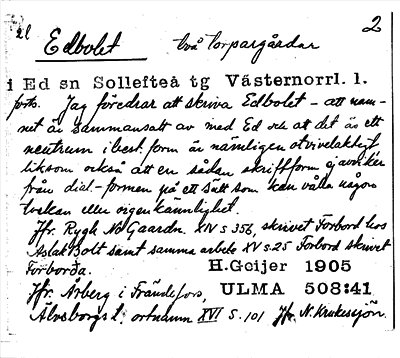 el
Edbolet två torpargårdar 2
i Ed sn Sollefteå tg Västernorrl. l.
forts. Jag föredrar att skriva Edbolet – att nam-
net är sammansatt av med Ed och att det är ett
neutrum i best. form är nämligen otvivelaktigt
liksom också att en sådan skriftform ej avviker
från dial-formen på ett sätt som kan vålla någon
tvekan eller oigenkännlighet.
Jfr. Rygh No Gaardn. XIV s 356, skrivet Forbord hos
Aslak Bolt samt samma arbete XV s. 25 Forbord skrivet
Forborða. H.Geijer 1905
Jfr. Årberg i Frändefors, ULMA 508:41
Älvsborgs l. ortnamn XVI s. 101 Jfr. N. Krukesjön.